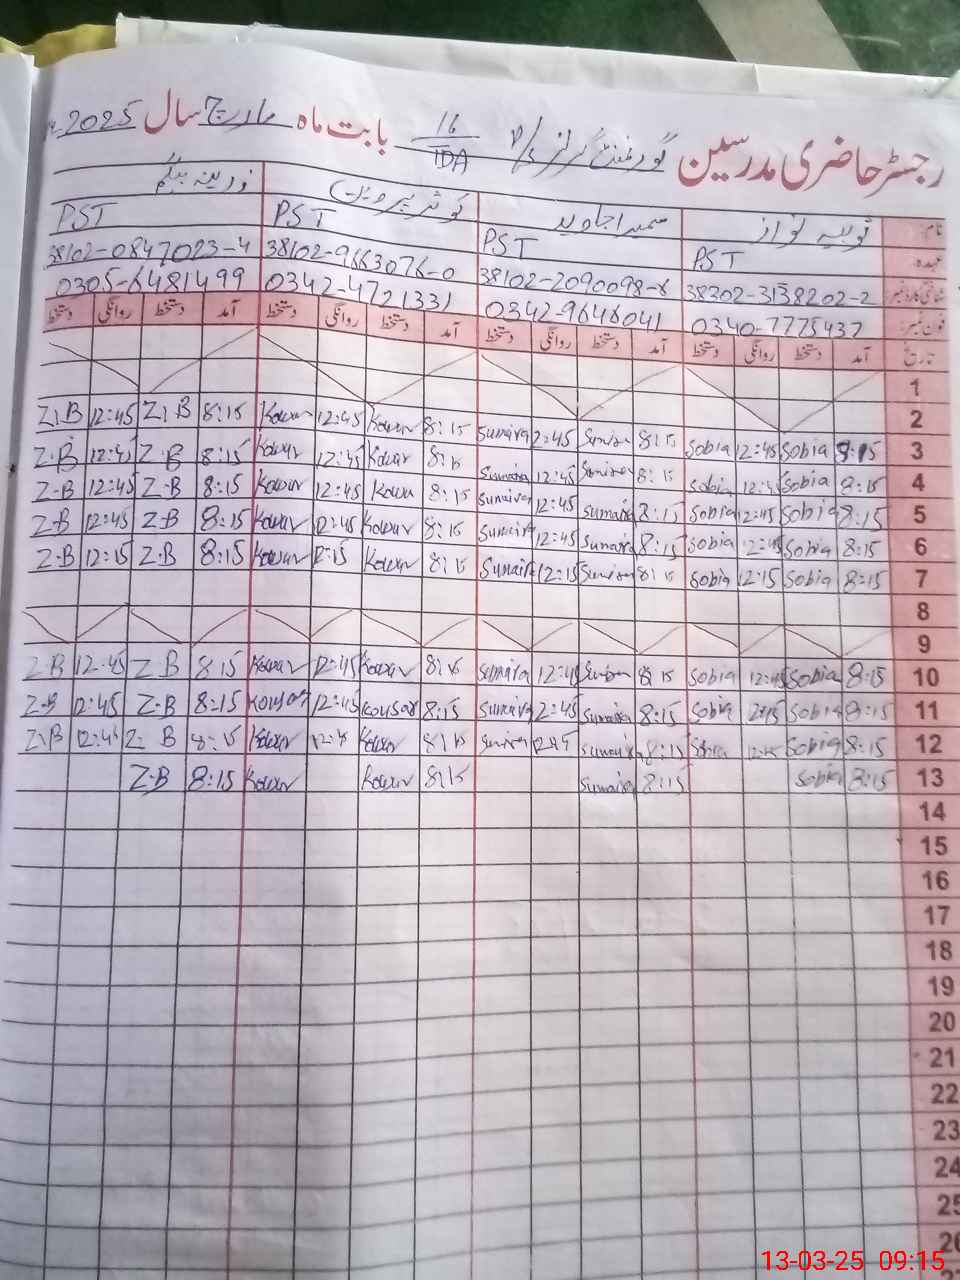 رجسٹر حاضری مدرسین گورنمنٹ گرلز P/S 16/TDA بابت ماہ مارچ سال 2025
نام: ثوبیہ نواز سمیرا جاوید کوثر پروین زرینہ بیگم
عہدہ: PST PST PST PST
شناختی کارڈ نمبر 38302-3138202-2 38102-2090098-8 38102-9663076-0 38102-0847023-4
فون نمبر: 0340-7775437 0342-9646041 0342-4721331 0305-6481499
تاریخ آمد دستخط روانگی دستخط آمد دستخط روانگی دستخط آمد دستخط روانگی دستخط آمد دستخط روانگی دستخط
1
2
3 8:15 Sobia 12:45 Sobia 8:15 Sumaira 2:45 Sumaira 8:15 Kowsar 12:45 Kowsar 8:15 Z.B 12:45 Z.B
4 8:15 Sobia 12:45 Sobia 8:15 Sumaira 12:45 Sumaira 8:15 Kowsar 12:45 Kowsar 8:15 Z.B 12:45 Z.B
5 8:15 Sobia 12:45 Sobia 8:15 Sumaira 12:45 Sumaira 8:15 Kowsar 12:45 Kowsar 8:15 Z.B 12:45 Z.B
6 8:15 Sobia 12:45 Sobia 8:15 Sumaira 12:45 Sumaira 8:15 Kowsar 12:45 Kowsar 8:15 Z.B 12:45 Z.B
7 8:15 Sobia 12:15 Sobia 8:15 Sumaira 12:15 Sumaira 8:15 Kowsar 12:15 Kowsar 8:15 Z.B 12:15 Z.B
8
9
10 8:15 Sobia 12:45 Sobia 8:15 Sumaira 12:45 Sumaira 8:15 Kowsar 12:45 Kowsar 8:15 Z.B 12:45 Z.B
11 8:15 Sobia 2:45 Sobia 8:15 Sumaira 2:45 Sumaira 8:15 Kousar 12:45 Kousar 8:15 Z.B 12:45 Z.B
12 8:15 Sobia 12:45 Sobia 8:15 Sumaira 12:45 Sumaira 8:15 Kowsar 12:45 Kowsar 8:15 Z.B 12:45 Z.B
13 8:15 Sobia 8:15 Sumaira 8:15 Kowsar Kowsar 8:15 Z.B
14
15
16
17
18
19
20
21
22
23
24
25
26
13-03-25 09:15